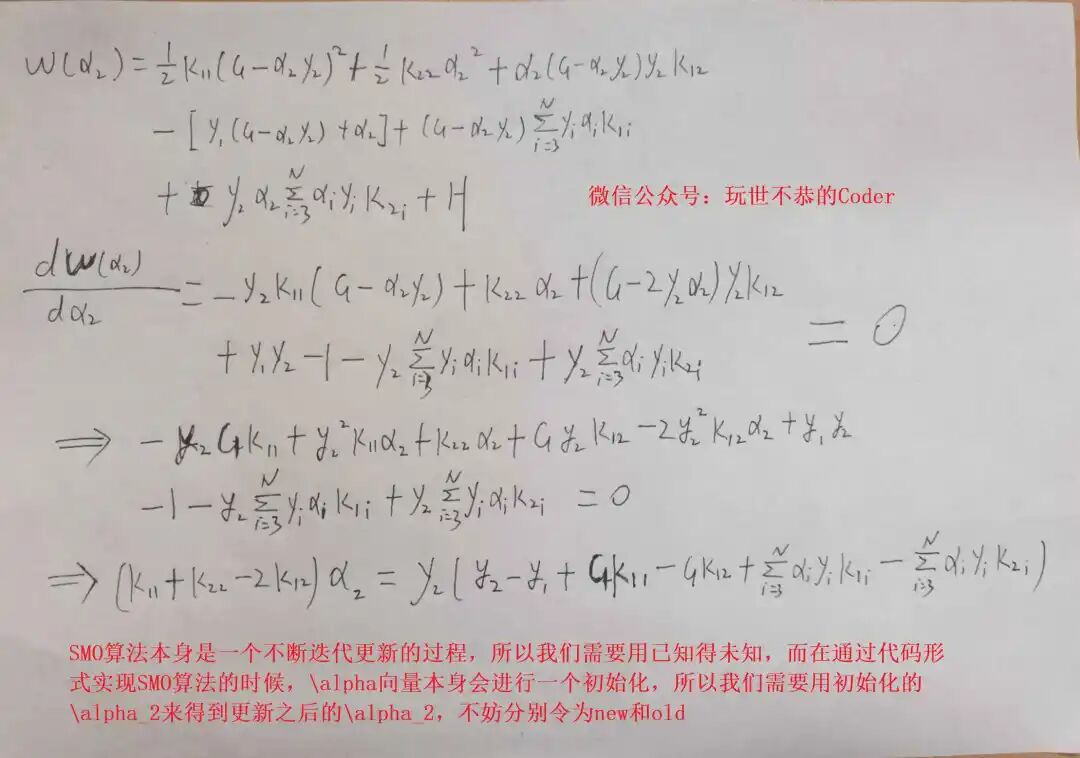 W(α₂) = ½ K₁₁(G-α₂y₂)² + ½ K₂₂α₂² + α₂(G-α₂y₂)y₂K₁₂
- [y₁(G-α₂y₂) + α₂] + (G-α₂y₂) Σᵢ₌₃ᴺ yᵢαᵢK₁ᵢ
+ y₂α₂ Σᵢ₌₃ᴺ αᵢyᵢK₂ᵢ + H
微信公众号：玩世不恭的Coder
dW(α₂)/dα₂ = -y₂K₁₁(G-α₂y₂) + K₂₂α₂ + (G-2y₂α₂)y₂K₁₂
+ y₁y₂ - 1 - y₂ Σᵢ₌₃ᴺ yᵢαᵢK₁ᵢ + y₂ Σᵢ₌₃ᴺ αᵢyᵢK₂ᵢ = 0
⇒ -y₂GK₁₁ + y₂²K₁₁α₂ + K₂₂α₂ + Gy₂K₁₂ - 2y₂²K₁₂α₂ + y₁y₂
-1 - y₂ Σᵢ₌₃ᴺ yᵢαᵢK₁ᵢ + y₂ Σᵢ₌₃ᴺ yᵢαᵢK₂ᵢ = 0
⇒ (K₁₁+K₂₂-2K₁₂)α₂ = y₂(y₂-y₁+GK₁₁-GK₁₂+ Σᵢ₌₃ᴺ αᵢyᵢK₁ᵢ - Σᵢ₌₃ᴺ αᵢyᵢK₂ᵢ)
SMO算法本身是一个不断迭代更新的过程，所以我们需要用已知得未知，而在通过代码形
式实现SMO算法的时候，\alpha向量本身会进行一个初始化，所以我们需要用初始化的
\alpha_2来得到更新之后的\alpha_2，不妨分别令为new和old